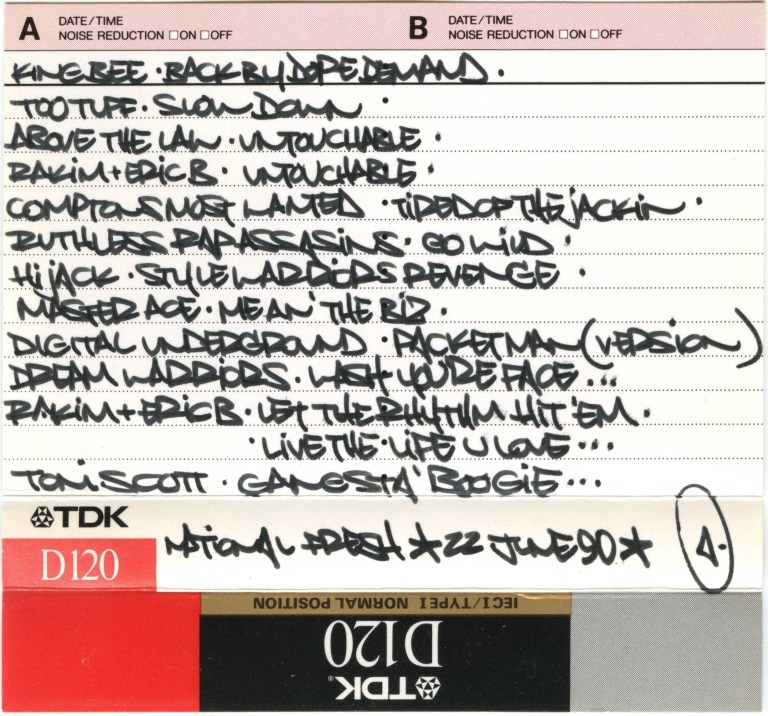 A DATE/TIME
NOISE REDUCTION □ON □OFF
B DATE/TIME
NOISE REDUCTION □ON □OFF
KING BEE · BACK BY DOPE DEMAND ·
TOO TUFF · SLOW DOWN ·
ABOVE THE LAW · UNTOUCHABLE ·
RAKIM + ERIC B · UNTOUCHABLE ·
COMPTONS MOST WANTED · TIRED OF THE JACKIN ·
RUTHLESS RAP ASSASINS · GO WILD ·
HIJACK · STYLE WARRIORS REVENGE ·
MASTER ACE · ME AN' THE BIZ ·
DIGITAL UNDERGROUND · PACKETMAN (VERSION)
DREAM WARRIORS · WASH YOU'RE FACE ...
RAKIM + ERIC B · LET THE RHYTHM HIT 'EM ·
· LIVE THE · LIFE U LOVE ...
TOM SCOTT · GANGSTA' BOOGIE ...
TDK
D120
NATIONAL FRESH * 22 JUNE 90 * A·
IECI/TYPEI NORMAL POSITION
D120
TDK®